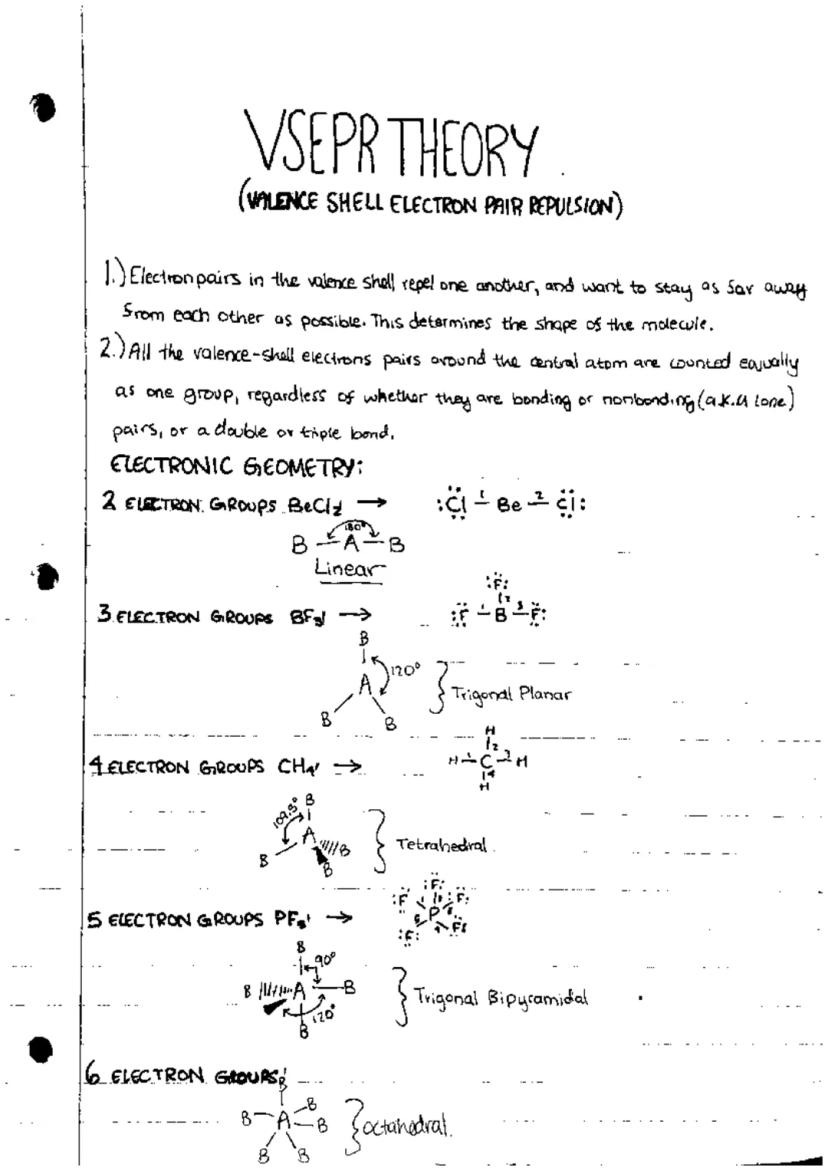 VSEPR THEORY
(VALENCE SHELL ELECTRON PAIR REPULSION)
1.) Electron pairs in the valence shell repel one another, and want to stay as far away
from each other as possible. This determines the shape of the molecule.
2.) All the valence-shell electrons pairs around the central atom are counted equally
as one group, regardless of whether they are bonding or nonbonding (a.k.a lone)
pairs, or a double or triple bond.
ELECTRONIC GEOMETRY:
2 ELECTRON GROUPS BeCl2 → :Cl 1 Be 2 Cl:
180°
B A B
Linear
:F:
3 ELECTRON GROUPS BF3 → :F 1 B 3 F:
2
B
120°
A
Trigonal Planar
B B
H
4 ELECTRON GROUPS CH4 → H 1 C 3 H
2
4
H
B
109.5°
A
B B
B
Tetrahedral
:F:
:F F:
5 ELECTRON GROUPS PF5 → P
:F: F:
B
90°
B A B
120°
B
Trigonal Bipyramidal
6 ELECTRON GROUPS:
B
B A B
B
B B
octahedral.